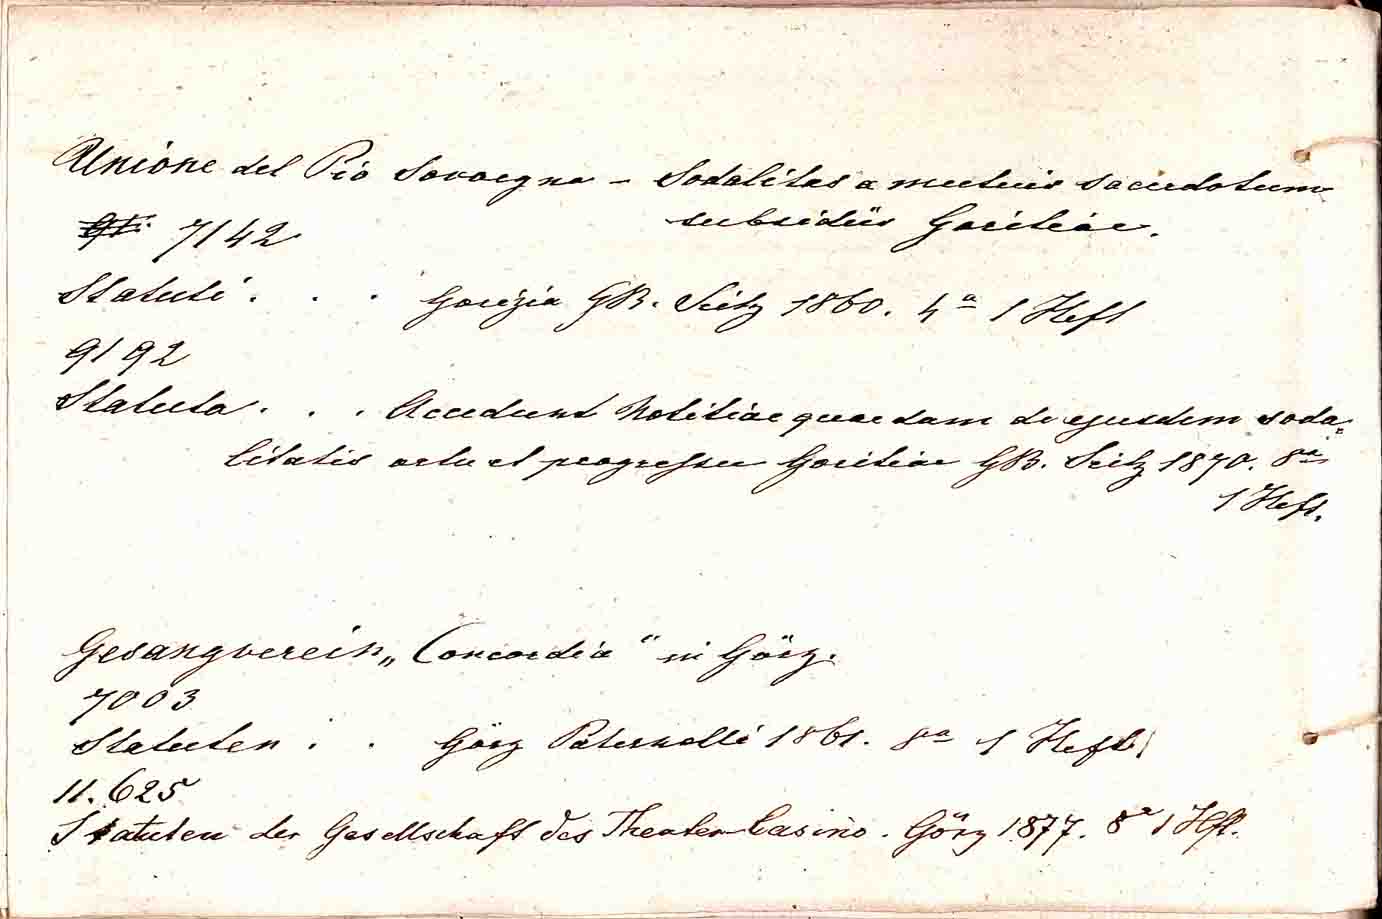 Unione del Pio Sovvegno – Sodalitas a mutuis sacerdotum
7142 subsidiis Goritiae.
Statuti . . . Gorizia GB. Seitz 1860. 4ª 1 Heft
9192
Statuta . . . Accedunt Notitiae quaedam de ejusdem soda=
litatis ortu et progressu Goritiae GB. Seitz 1870. 8ª
1 Heft.
Gesangverein „Concordia“ in Görz.
7003
Statuten . . Görz Paternolli 1861. 8ª 1 Heft
11.625
Statuten der Gesellschaft des Theater-Casino. Görz 1877. 8ª 1 Hft.